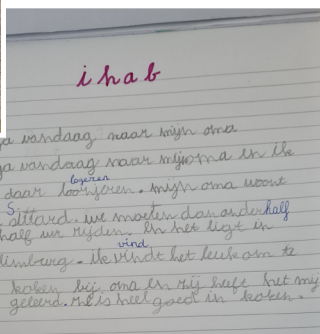 ihab
ga vandaag naar mijn oma
ga vandaag naar mijn oma en ik
logeren
daar loorjeren. mijn oma woont
S
sittard. we moeten dan anderhalf
half uur rijden. En het ligt in
vind
limburg. ik vindt het leuk om te
koken bij oma en zij heeft het mij
geleerd. ze is heel goed in koken.